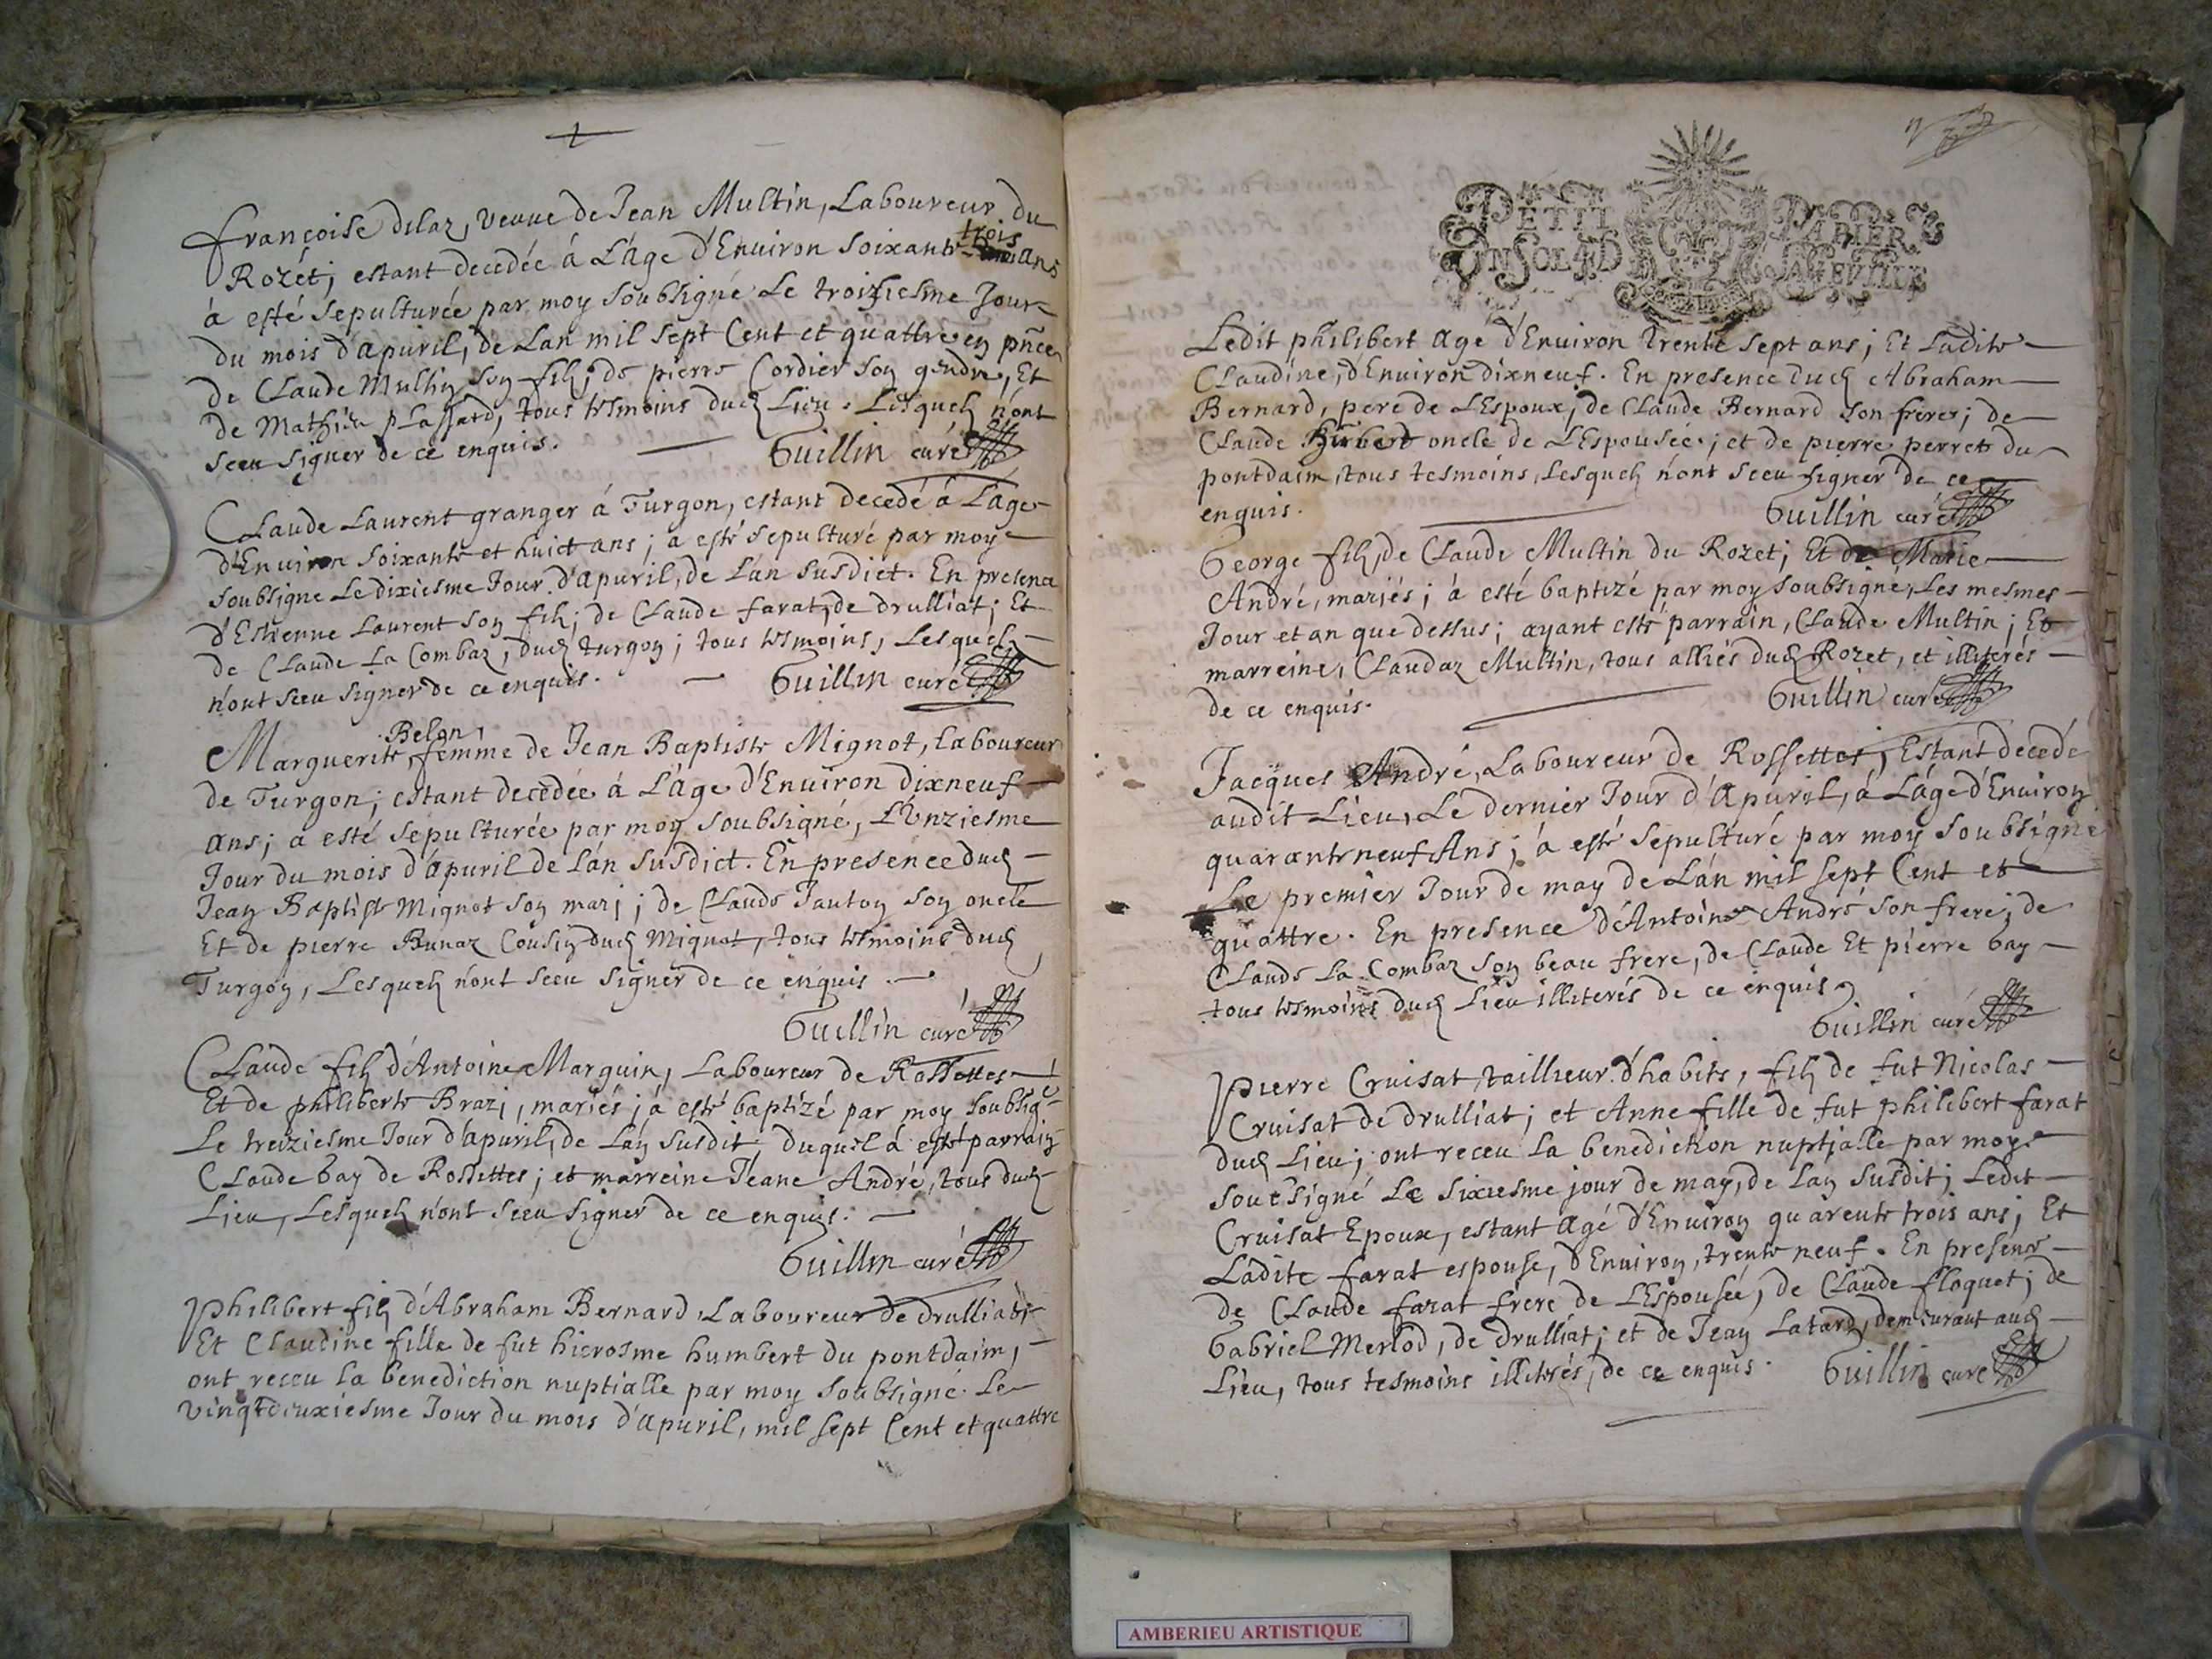 françoise delaz, veuue de Jean Multin, Laboureur du
Rozet; estant decedée á Láge d'Enuiron soixante trois ans
á esté sepulturée par moy soubsigné Le troiziesme Jour
du mois d'apuril, de Lan mil sept Cent et quattre en pñce
de Claude Multin son filz; de pierre Cordier son gendre, Et
de Mathieu plassard, tous tesmoins dud Lieu. Lesquelz n'ont
sceu signer de ce enquis. Guillin curé
Claude Laurent granger á Turgon, estant decedé á Láge
d'Enuiron soixante et huict ans; a esté sepulturé par moy
soubsigné Le dixiesme Jour d'apuril, de Lán susdict. En presence
d'Estienne Laurent son filz; de Claude farat, de drulliat; Et
de Claude La Combaz, dud turgon; tous tesmoins, Lesquelz
n'ont sceu signer de ce enquis. Guillin curé
Belon,
Marguerite, femme de Jean Baptiste Mignot, Laboureur
de Turgon; estant decedée á Láge d'Enuiron dixneuf
ans; a esté sepulturée par moy soubsigné, L'Unziesme
Jour du mois d'apuril de Lán susdict. En presence dud
Jean Baptiste Mignot son mari; de Claude Janton son oncle
Et de pierre Bunaz Cousin dud Mignot, tous tesmoins dud
Turgon, Lesquelz n'ont sceu signer de ce enquis.
Guillin curé
Claude filz d'Antoine Marguin, Laboureur de Rossettes
Et de philiberte Brazi, mariés; á esté baptizé par moy soubsigné
Le treiziesme Jour d'apuril, de Lan susdit, duquel á esté parrain
Claude Gay de Rossettes; et marreine Jeane André, tous dud
Lieu, Lesquelz n'ont sceu signer de ce enquis.
Guillin curé
Philibert filz d'Abraham Bernard, Laboureur de drulliat
Et Claudine fille de fut hierosme humbert du pontdaim,
ont receu La benediction nuptialle par moy soubsigné Le
vingtdeuxiesme Jour du mois d'apuril, mil sept Cent et quattre
PETIT PAPIER
UN SOL 4 D LA FEVILLE
Ledit philibert agé d'Enuiron Trente sept ans; Et Ladite
Claudine, d'Enuiron dixneuf. En presence dud Abraham
Bernard, pere de L'Espoux; de Claude Bernard son frere; de
Claude oncle de L'Espousée; et de pierre perret du
pontdaim, tous tesmoins, Lesquelz n'ont sceu signer de ce
enquis. Guillin curé
George filz, de Claude Multin du Rozet; Et de Marie
André, mariés; á esté baptizé par moy soubsigné, Les mesmes
Jour et an que dessus; ayant esté parrain, Claude Multin; Et
marreine, Claudaz Multin, tous alliés dud Rozet, et illiterés
de ce enquis. Guillin curé
Jacques André, Laboureur de Rossettes, Estant decedé
audit Lieu, Le dernier Jour d'Apuril, á Láge d'Enuiron
quarante neuf Ans; á esté sepulturé par moy soubsigné
Le premier Jour de may de Lán mil sept Cent et
quattre. En presence d'Antoine André son frere; de
Claude La Combaz son beau frere, de Claude Et pierre Gay
tous tesmoins dud Lieu illiterés de ce enquis
Guillin curé
Pierre Cruisat, tailleur d'habits, filz de fut Nicolas
Cruisat de drulliat; et Anne fille de fut philibert farat
dud Lieu; ont receu La benediction nuptialle par moy
soubsigné Le sixiesme jour de may, de Lan susdit; Ledit
Cruisat Epoux, estant agé d'Enuiron quarente trois ans; Et
Ladite farat espouse, d'Enuiron, trente neuf. En presence
de Claude farat frere de L'Espousée, de Claude floquet; de
Gabriel Merlod, de drulliat; et de Jean Latard, demeurant aud
Lieu, tous tesmoins illiterés, de ce enquis. Guillin curé
AMBERIEU ARTISTIQUE